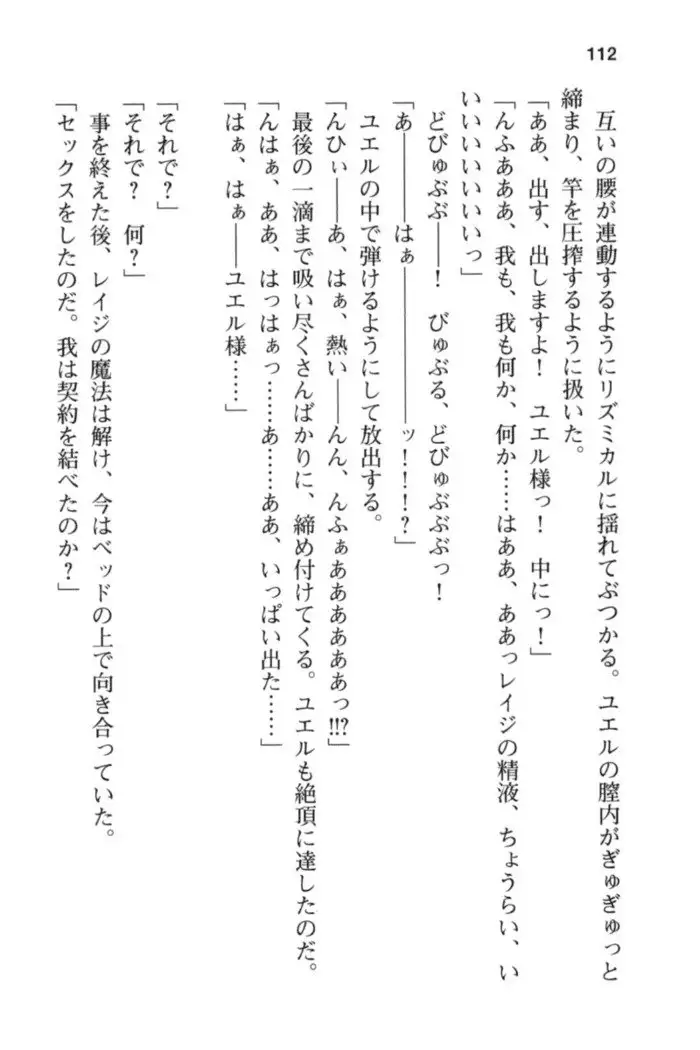 112
互いの腰が連動するようにリズミカルに揺れてぶつかる。ユエルの膣内がぎゅぎゅっと
締まり、竿を圧搾するように扱いた。
「ああ、出す、出しますよ！　ユエル様っ！　中にっ！」
「んふぁああ、我も、我も何か、何か……はああ、ああっレイジの精液、ちょうらい、い
いいいいいいいっ」
どびゅぶぶ――！　びゅぶる、どびゅぶぶぶっ！
「あ――――はぁ――――――――ッ！！！？」
ユエルの中で弾けるようにして放出する。
「んひぃ――あ、はぁ、熱い――んん、んふぁああああああっ!!?」
最後の一滴まで吸い尽くさんばかりに、締め付けてくる。ユエルも絶頂に達したのだ。
「んはぁ、ああ、はっはぁっ……あ……ああ、いっぱい出た……」
「はぁ、はぁ――ユエル様……」
「それで？」
「それで？　何？」
事を終えた後、レイジの魔法は解け、今はベッドの上で向き合っていた。
「セックスをしたのだ。我は契約を結べたのか？」